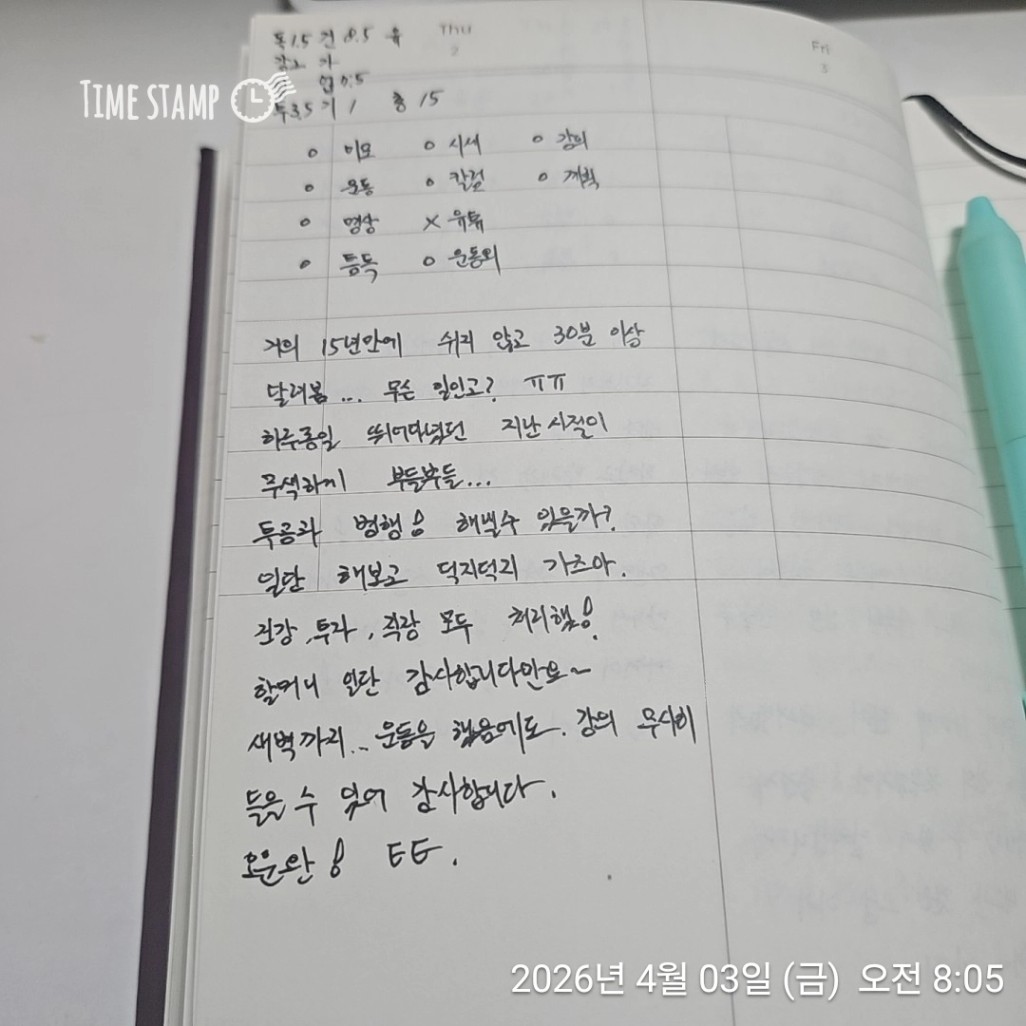 Thu
2
Fri
3
독1.5 건 0.5 유
강2 가
업0.5
투3.5 기 1 총 15
TIME STAMP
o 미모 o 시세 o 강의
o 운동 o 칼럼 o 계획
o 영상 x 유튜
o 틈독 o 운동외
거의 15년만에 쉬지 않고 30분 이상
달려봄... 무슨 일인고? ㅠㅠ
하루종일 뛰어다녔던 지난 시절이
무색하게 부들부들...
투공과 병행! 해낼수 있을까?
일단 해보고 덕지덕지 가즈아.
건강, 투자, 직장 모두 처리했!
할머니 일단 감사합니다만요~
새벽까지.. 운동을 했음에도. 강의 무사히
들을 수 있어 감사합니다.
오운완! EE.
2026년 4월 03일 (금) 오전 8:05